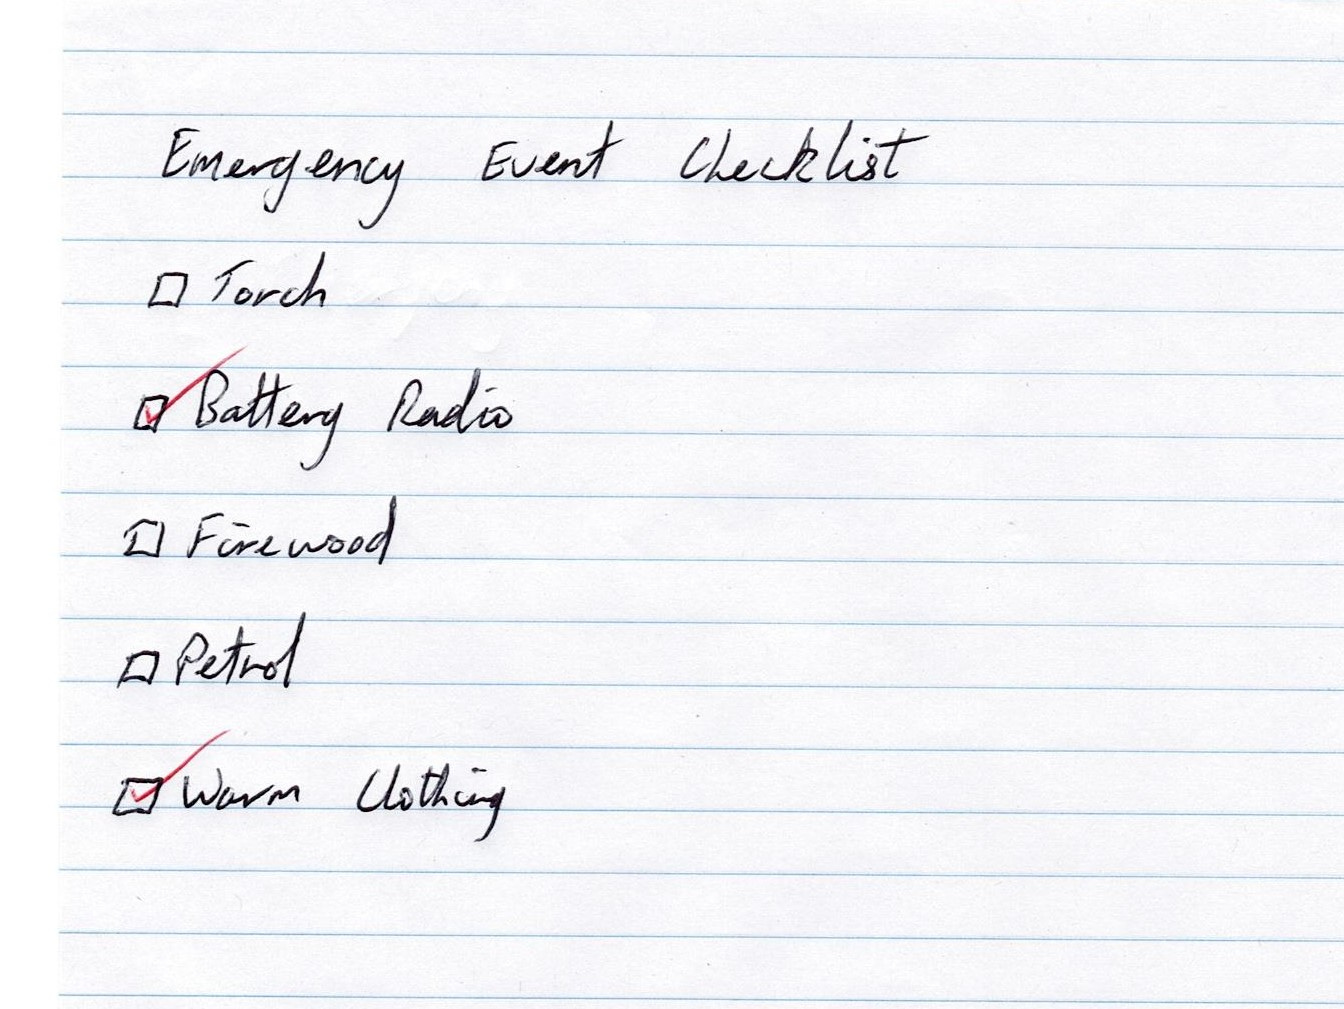 Emergency Event Checklist
☐ Torch
☑ Battery Radio
☐ Firewood
☐ Petrol
☑ Warm Clothing